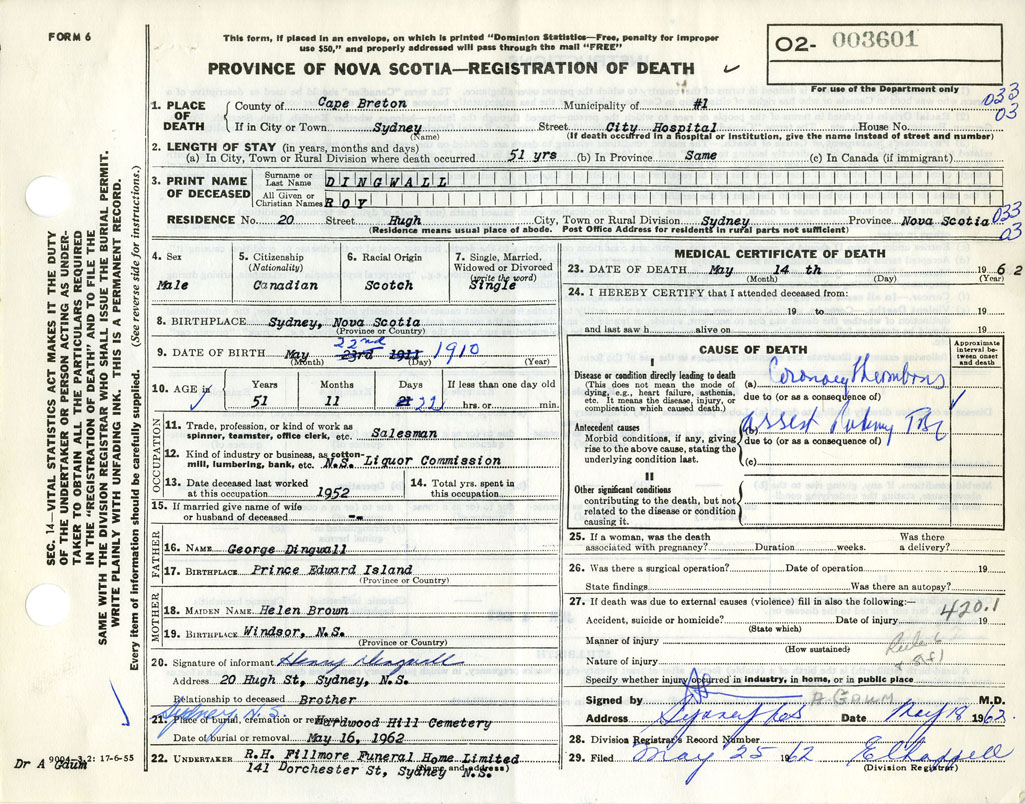 FORM 6
This form, if placed in an envelope, on which is printed "Dominion Statistics—Free, penalty for improper
use $50," and properly addressed will pass through the mail "FREE"
O2- 003601
PROVINCE OF NOVA SCOTIA—REGISTRATION OF DEATH
For use of the Department only
033
03
1. PLACE OF DEATH
County of Cape Breton Municipality of #1
If in City or Town Sydney Street City Hospital House No.
(Name) (If death occurred in a hospital or institution, give the name instead of street and number)
2. LENGTH OF STAY (in years, months and days)
(a) In City, Town or Rural Division where death occurred 51 yrs (b) In Province Same (c) In Canada (if immigrant)
3. PRINT NAME OF DECEASED
Surname or Last Name DINGWALL
All Given or Christian Names ROY
RESIDENCE No. 20 Street Hugh City, Town or Rural Division Sydney Province Nova Scotia
033
03
(Residence means usual place of abode. Post Office Address for residents in rural parts not sufficient)
4. Sex
Male
5. Citizenship
(Nationality)
Canadian
6. Racial Origin
Scotch
7. Single, Married,
Widowed or Divorced
(write the word)
Single
8. BIRTHPLACE Sydney, Nova Scotia
(Province or Country)
22nd
9. DATE OF BIRTH May 23rd 1911 1910
(Month) (Day) (Year)
10. AGE in
Years Months Days If less than one day old
51 11 21 22 hrs. or min.
OCCUPATION
11. Trade, profession, or kind of work as
spinner, teamster, office clerk, etc. Salesman
12. Kind of industry or business, as cotton-
mill, lumbering, bank, etc. N.S. Liquor Commission
13. Date deceased last worked
at this occupation 1952
14. Total yrs. spent in
this occupation
15. If married give name of wife
or husband of deceased --
FATHER
16. NAME George Dingwall
17. BIRTHPLACE Prince Edward Island
(Province or Country)
MOTHER
18. MAIDEN NAME Helen Brown
19. BIRTHPLACE Windsor, N.S.
(Province or Country)
20. Signature of informant Henry Dingwall
Address 20 Hugh St, Sydney, N.S.
Relationship to deceased Brother
Sydney N.S.
21. Place of burial, cremation or removal Hardwood Hill Cemetery
Date of burial or removal May 16, 1962
22. UNDERTAKER R.H. Fillmore Funeral Home Limited
141 Dorchester St, Sydney N.S.
(Name and address)
9004-3.2: 17-6-55
Dr A Gaum
MEDICAL CERTIFICATE OF DEATH
23. DATE OF DEATH May 14 th 1962
(Month) (Day) (Year)
24. I HEREBY CERTIFY that I attended deceased from:
19 to 19
and last saw h alive on 19
CAUSE OF DEATH
Approximate
interval be-
tween onset
and death
I
Disease or condition directly leading to death
(This does not mean the mode of
dying, e.g., heart failure, asthenia,
etc. It means the disease, injury, or
complication which caused death.)
(a) Coronary Thrombosis
due to (or as a consequence of)
Antecedent causes
Morbid conditions, if any, giving
rise to the above cause, stating the
underlying condition last.
(b)
due to (or as a consequence of)
(c)
II
Other significant conditions
contributing to the death, but not
related to the disease or condition
causing it.
25. If a woman, was the death
associated with pregnancy? Duration weeks. Was there
a delivery?
26. Was there a surgical operation? Date of operation 19
State findings Was there an autopsy?
27. If death was due to external causes (violence) fill in also the following:—
420.1
Accident, suicide or homicide? Date of injury 19
(State which)
Manner of injury
(How sustained)
Rule 6
Nature of injury
Specify whether injury occurred in industry, in home, or in public place
Signed by A. GAUM M.D.
Address Sydney Date May 18 1962
28. Division Registrar's Record Number
29. Filed May 25 1962
(Division Registrar)
SEC. 14—VITAL STATISTICS ACT MAKES IT THE DUTY
OF THE UNDERTAKER OR PERSON ACTING AS UNDER-
TAKER TO OBTAIN ALL THE PARTICULARS REQUIRED
IN THE "REGISTRATION OF DEATH" AND TO FILE THE
SAME WITH THE DIVISION REGISTRAR WHO SHALL ISSUE THE BURIAL PERMIT.
WRITE PLAINLY WITH UNFADING INK. THIS IS A PERMANENT RECORD.
Every item of information should be carefully supplied. (See reverse side for instructions.)